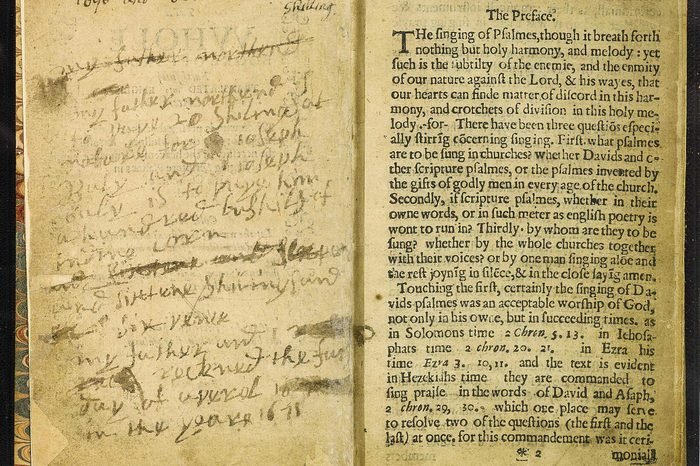 Shiling
my father northend
my father northend is
to have 20 Shilings at
for Joseph
and Joseph
is to pay him
a hundred bushils of
corn
and sixtene Shilings and
six pence
my father and I
the
day of averel
in the yeare 1671
The Preface.
THe singing of Psalmes, though it breath forth
nothing but holy harmony, and melody: yet
such is the subtilty of the enemie, and the enmity
of our nature against the Lord, & his wayes, that
our hearts can finde matter of discord in this har-
mony, and crotchets of division in this holy me-
lody.-for- There have been three questiõs especi-
ally stirrĩg cõcerning singing. First. what psalmes
are to be sung in churches? whether Davids and o-
ther scripture psalmes, or the psalmes invented by
the gifts of godly men in every age of the church.
Secondly, if scripture psalmes, whether in their
owne words, or in such meter as english poetry is
wont to run in? Thirdly. by whom are they to be
sung? whether by the whole churches together
with their voices? or by one man singing alõe and
the rest joynĩg in silẽce, & in the close sayĩg amen.
Touching the first, certainly the singing of Da-
vids psalmes was an acceptable worship of God,
not only in his owne, but in succeeding times. as
in Solomons time 2 Chron. 5. 13. in Jehosa-
phats time 2 chron. 20. 21. in Ezra his
time Ezra 3. 10, 11. and the text is evident
in Hezekiahs time they are commanded to
sing praise in the words of David and Asaph,
2 chron. 29, 30. which one place may serve
to resolve two of the questions (the first and the
last) at once, for this commandement was it ceri-
* 2 moniall